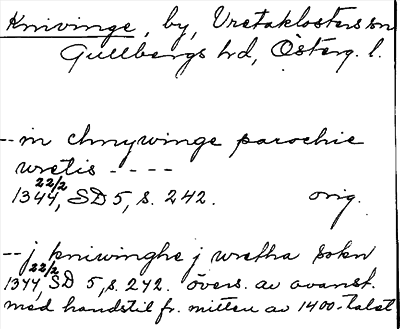 Knivinge, by, Vretaklosters sn
Gullbergs hd, Österg. l.
-- in chnywinge parochie
wretis ----
22/2
1344, SD 5, s. 242. orig.
-- j kniwinghe j wretha sokn
22/2
1344, SD 5, s. 242. övers. av avanst.
med handstil fr. mitten av 1400-talet